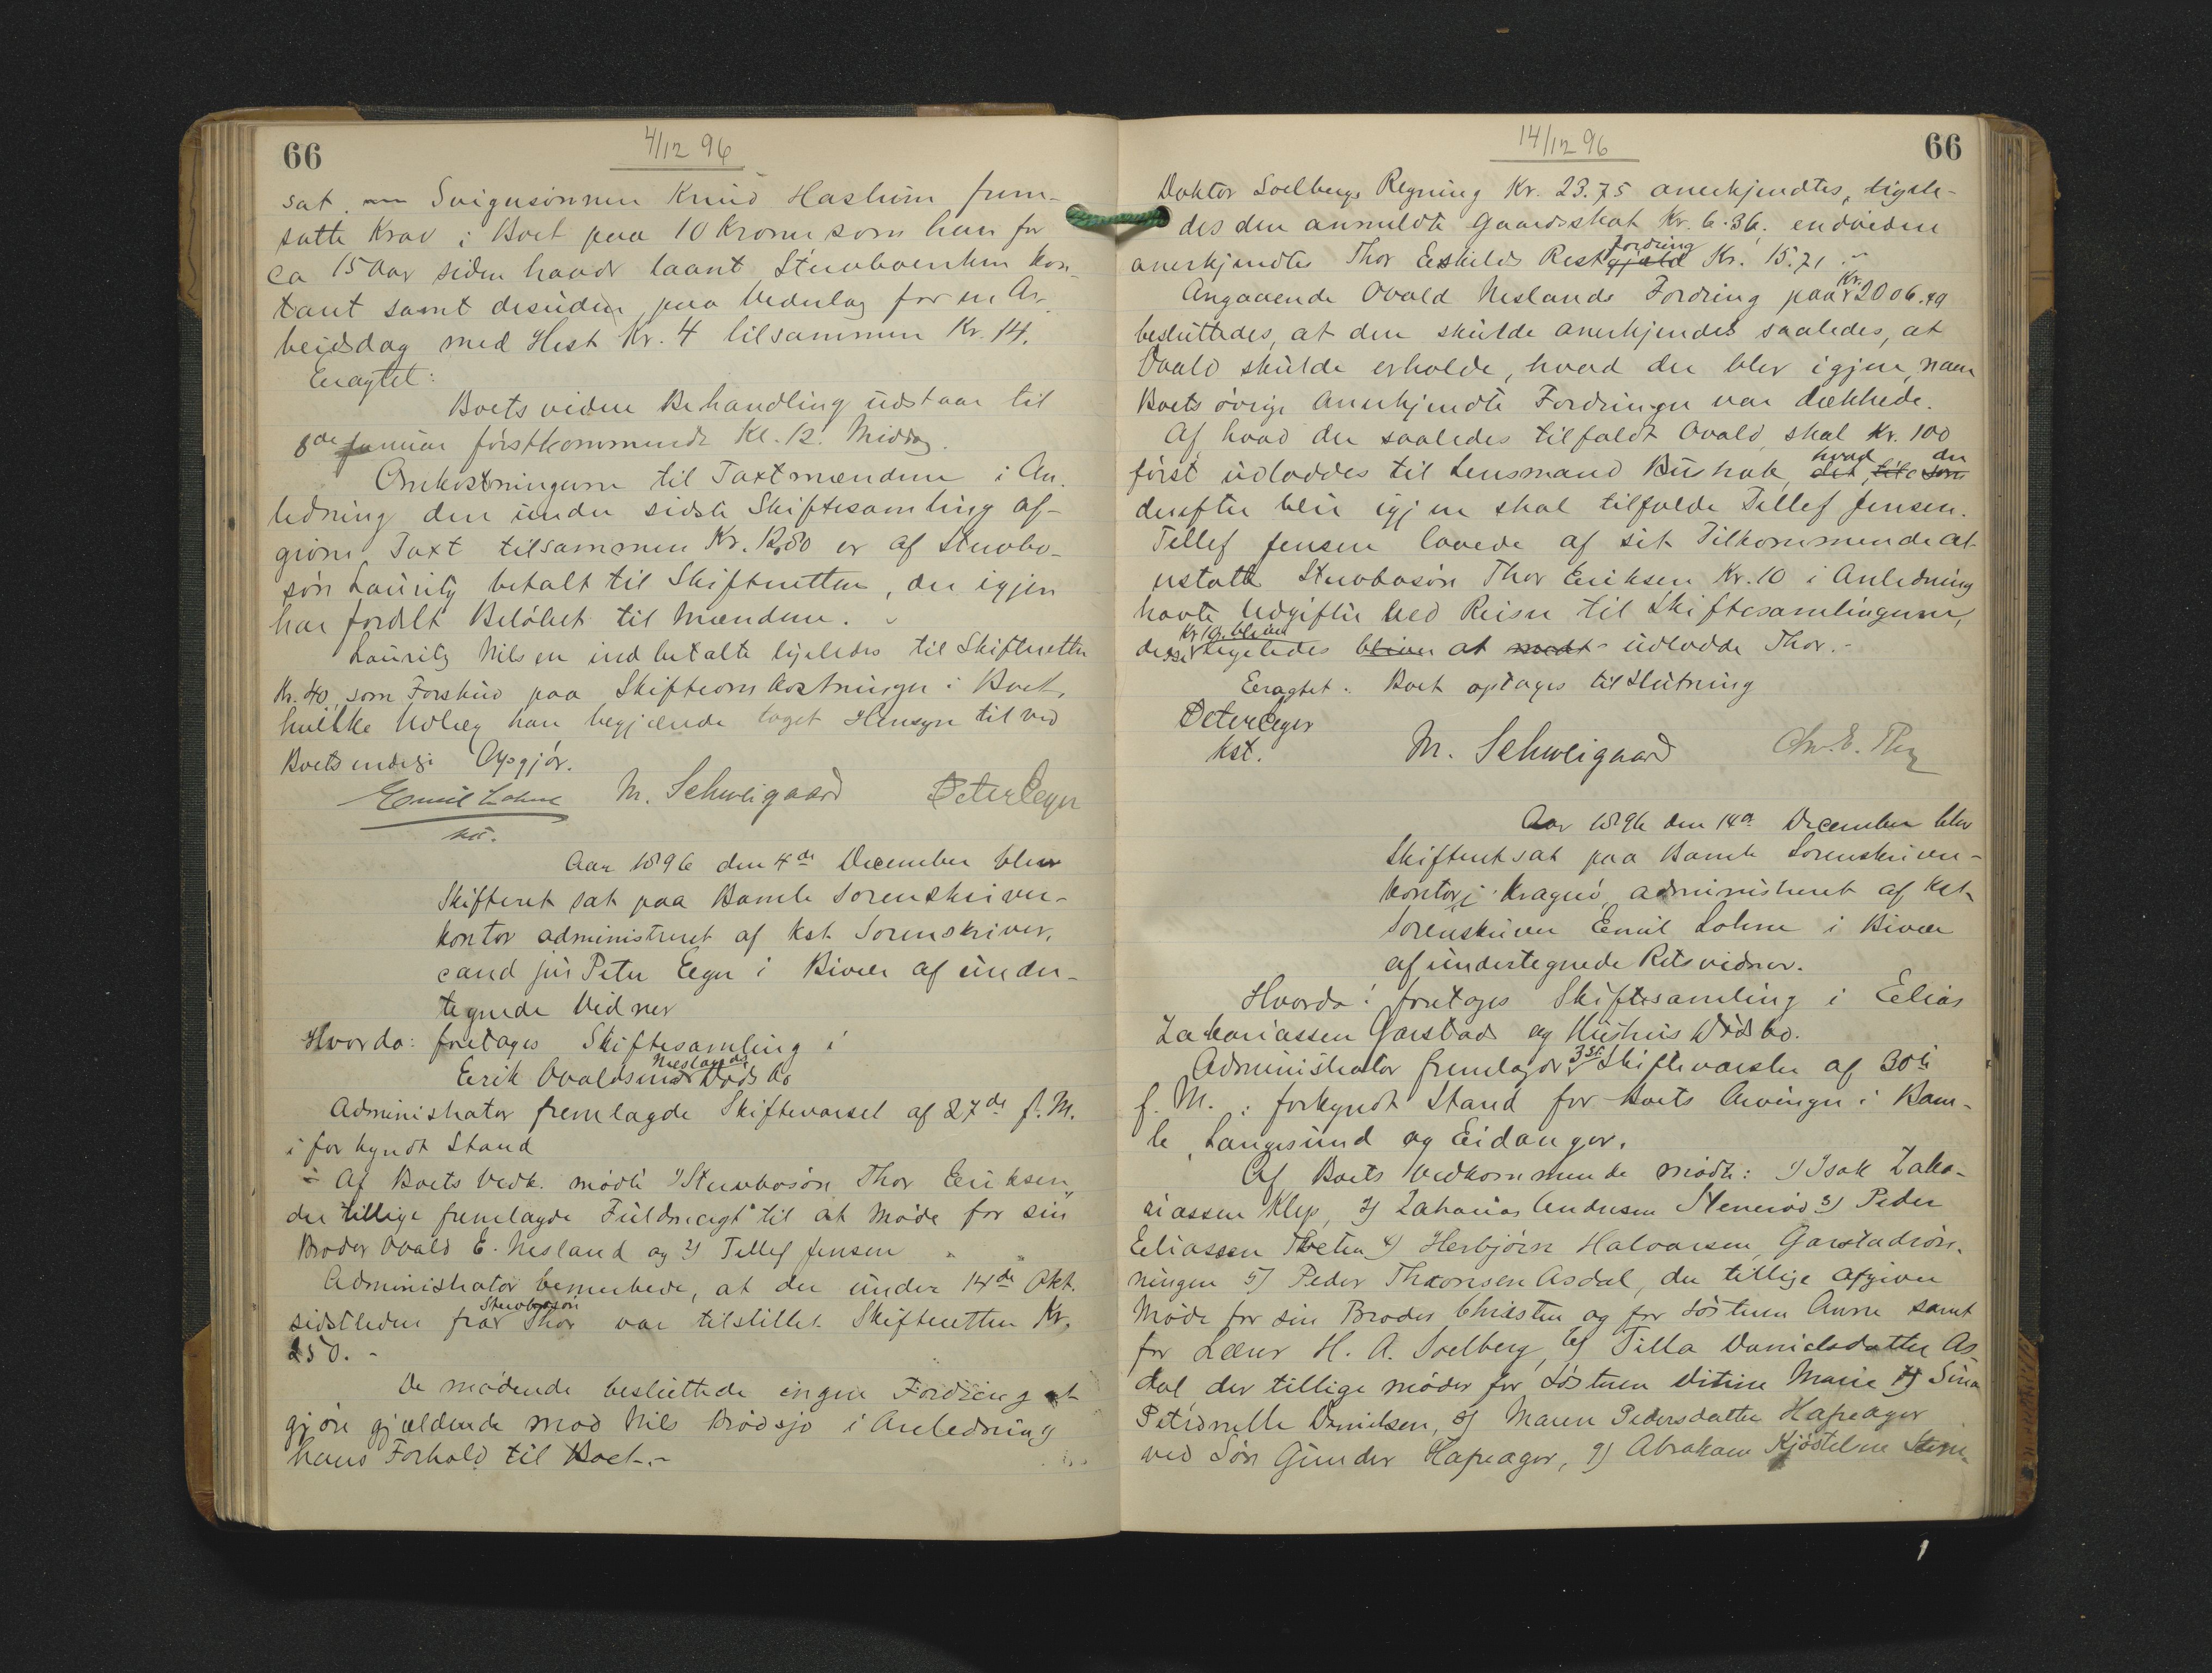 66
4/12 96
sat. Svigersønnen Knud Haslum frem-
satte Krav i Boet paa 10 Kroner som han for
ca 15 Aar siden havde laant Stervboenken kon-
tant samt desuden paa Vederlag for en Ar-
beidsdag med Hest Kr. 4 tilsammen Kr. 14.
Eragtet:
Boets videre Behandling udstaar til
8de Januar førstkommende Kl. 12. Middag.
Omkostningerne til Taxtmændene i An-
ledning den under sidste Skiftesamling af-
givne Taxt tilsammen Kr. 12,80 er af Stervbo-
søn Lauritz betalt til Skifteretten, der igjen
har fordelt Beløbet til Mændene.
Lauritz Nilsen indbetalte ligeledes til Skifteretten
Kr. 40 som Forskud paa Skifteomkostninger i Boet,
hvilke Udlæg han begjærede taget Hensyn til ved
Boets endelige Opgjør.
Emil Lohne M. Schweigaard Peter Eeger
kst.
Aar 1896 den 4de December blev
Skifteret sat paa Bamle Sorenskriver-
kontor administreret af kst. Sorenskriver,
cand jur Peter Eeger i Bivær af under-
tegnede Vidner
Hvorda: foretages Skiftesamling i
Neslands
Eerik Ovaldsens Dødsbo
Administrator fremlagde Skiftevarsel af 27de f. M.
i forkyndt Stand
- Af Boets Vedk. mødte 1) Stervbosøn Thor Eeriksen,
der tillige fremlagde Fuldmagt til at møde for sin
Broder Ovald E. Nesland og 2) Tellef Jensen
Administrator bemerkede, at der under 14de Okt.
Stervbosøn
sidstleden fra Thor var tilstillet Skifteretten Kr.
250. -
De mødende besluttede ingen Fordring at
gjøre gjældende mod Nils Brødsjø i Anledning
hans Forhold til Boet.-
14/12 96
66
Doktor Soelbergs Regning Kr. 23.75 anerkjendtes, ligele-
des den anmeldte Gaardsskat Kr. 6.36. endvidere
fordring
anerkjendtes Thor Eeskilds Restgjæld Kr. 15.71.-
Angaaende Ovald Neslands Fordring paa Kr. 2006.49
besluttedes, at den skulde anerkjendes saaledes, at
Ovald skulde erholde, hvad der blev igjen, naar
Boets øvrige anerkjendte Fordringer var dækkede.
Af hvad der saaledes tilfaldt Ovald, skal Kr. 100
hvad der
først udloddes til Lensmand Buhak, det, som
derefter blir igjen skal tilfalde Tellef Jensen.
Tellef Jensen lovede af sit Tilkommende at
erstatte Stervbosøn Thor Eeriksen Kr. 10 i Anledning
havte Udgifter ved Reisen til Skiftesamlingerne,
Kr 10. bliver
disse ligeledes bliver at udlodde Thor.-
Eragtet. Boet optages til Slutning
Peter Eeger
kst. M. Schweigaard
Aar 1896 den 14de December blev
Skifteret sat paa Bamle Sorenskriver-
kontor i Kragerø, administreret af kst.
Sorenskriver Emil Lohne i Bivær
af undertegnede Retsvidner.
Hvorda: foretages Skiftesamling i Eelias
Zakariassen Garstads og Hustrus Dødsbo.
Administrator fremlagde 3 st. Skiftevarsler af 30te
f. M. i forkyndt Stand for Boets Arvinger i Bam-
le, Langesund og Eidanger.
Af Boets Vedkommende mødte: 1) Isak Zaka-
riassen Klep, 2) Zakarias Andersen Stenerød 3) Peder
Eeliassen Tveten 4) Herbjørn Halvorsen, Garstadrøn-
ningen 5) Peder Thomsen Asdal, der tillige afgiver
Møde for sin Broder Christen og for Søsteren Anne samt
for Lærer H. A. Soelberg, 6) Tilla Danielsdatter As-
dal der tillige møder for Søsteren Ditine Marie 7) Sina
Petronelle Danielsen, 8) Maren Pedersdatter Hafreager
ved Søn Gunder Hafreager, 9) Abraham Kjøstelsen Sten-